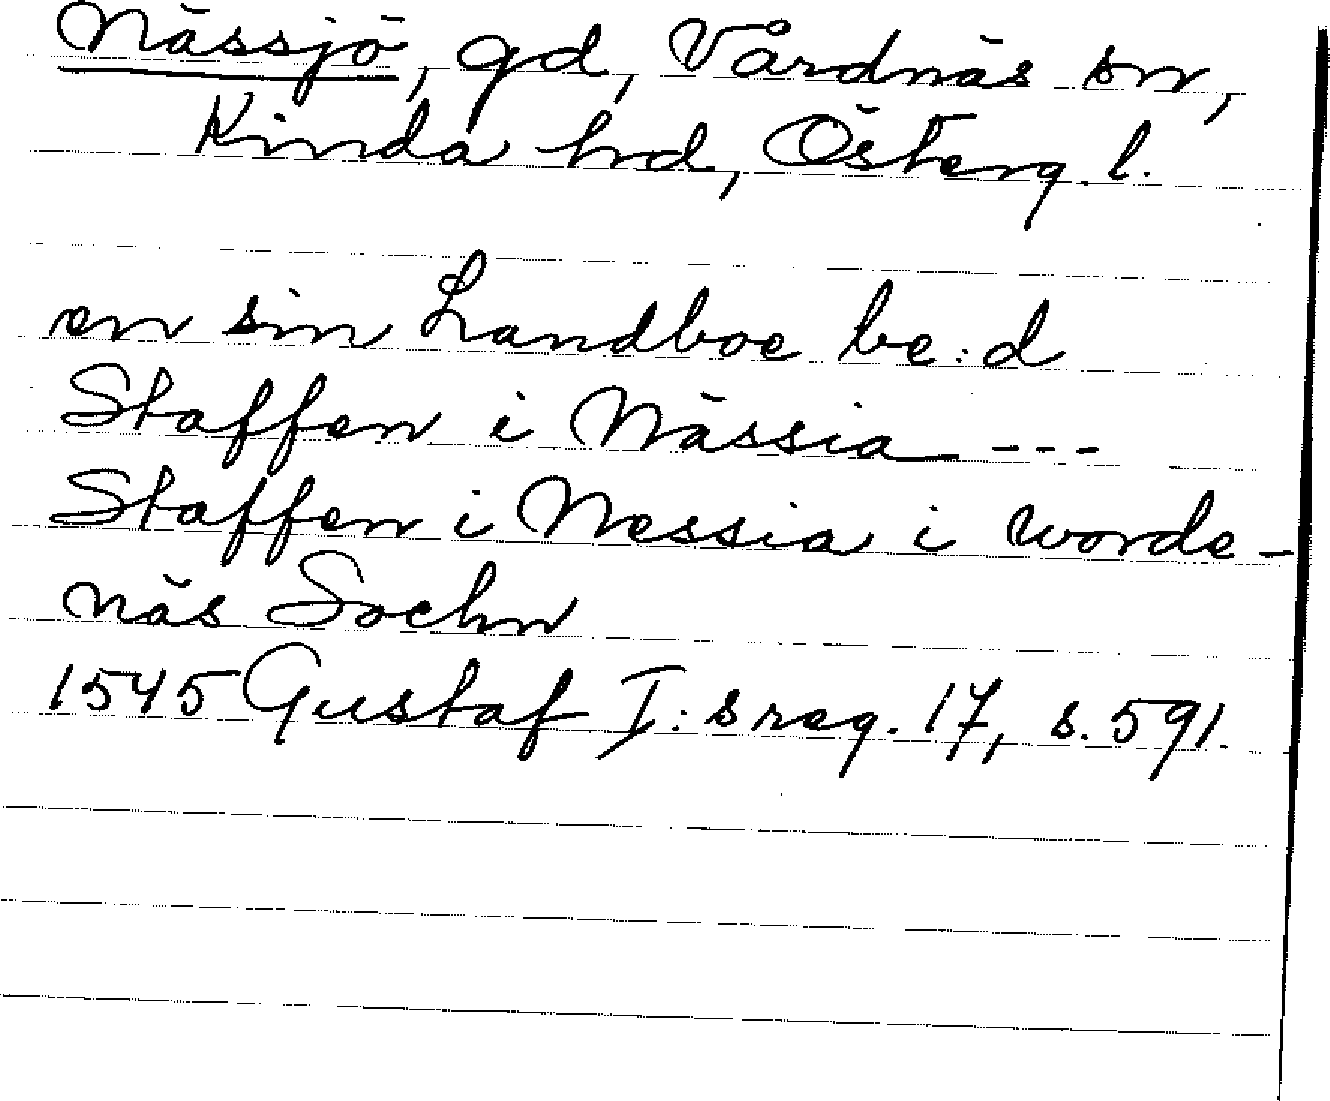 Nässjö, gd, Vårdnäs sn,
Kinda hd, Österg. l.
en sin Landboe be:d
Staffen i Nässia ---
Staffen i Nessia i worde-
näs Sochn
1545 Gustaf I:s reg. 17, s. 591.